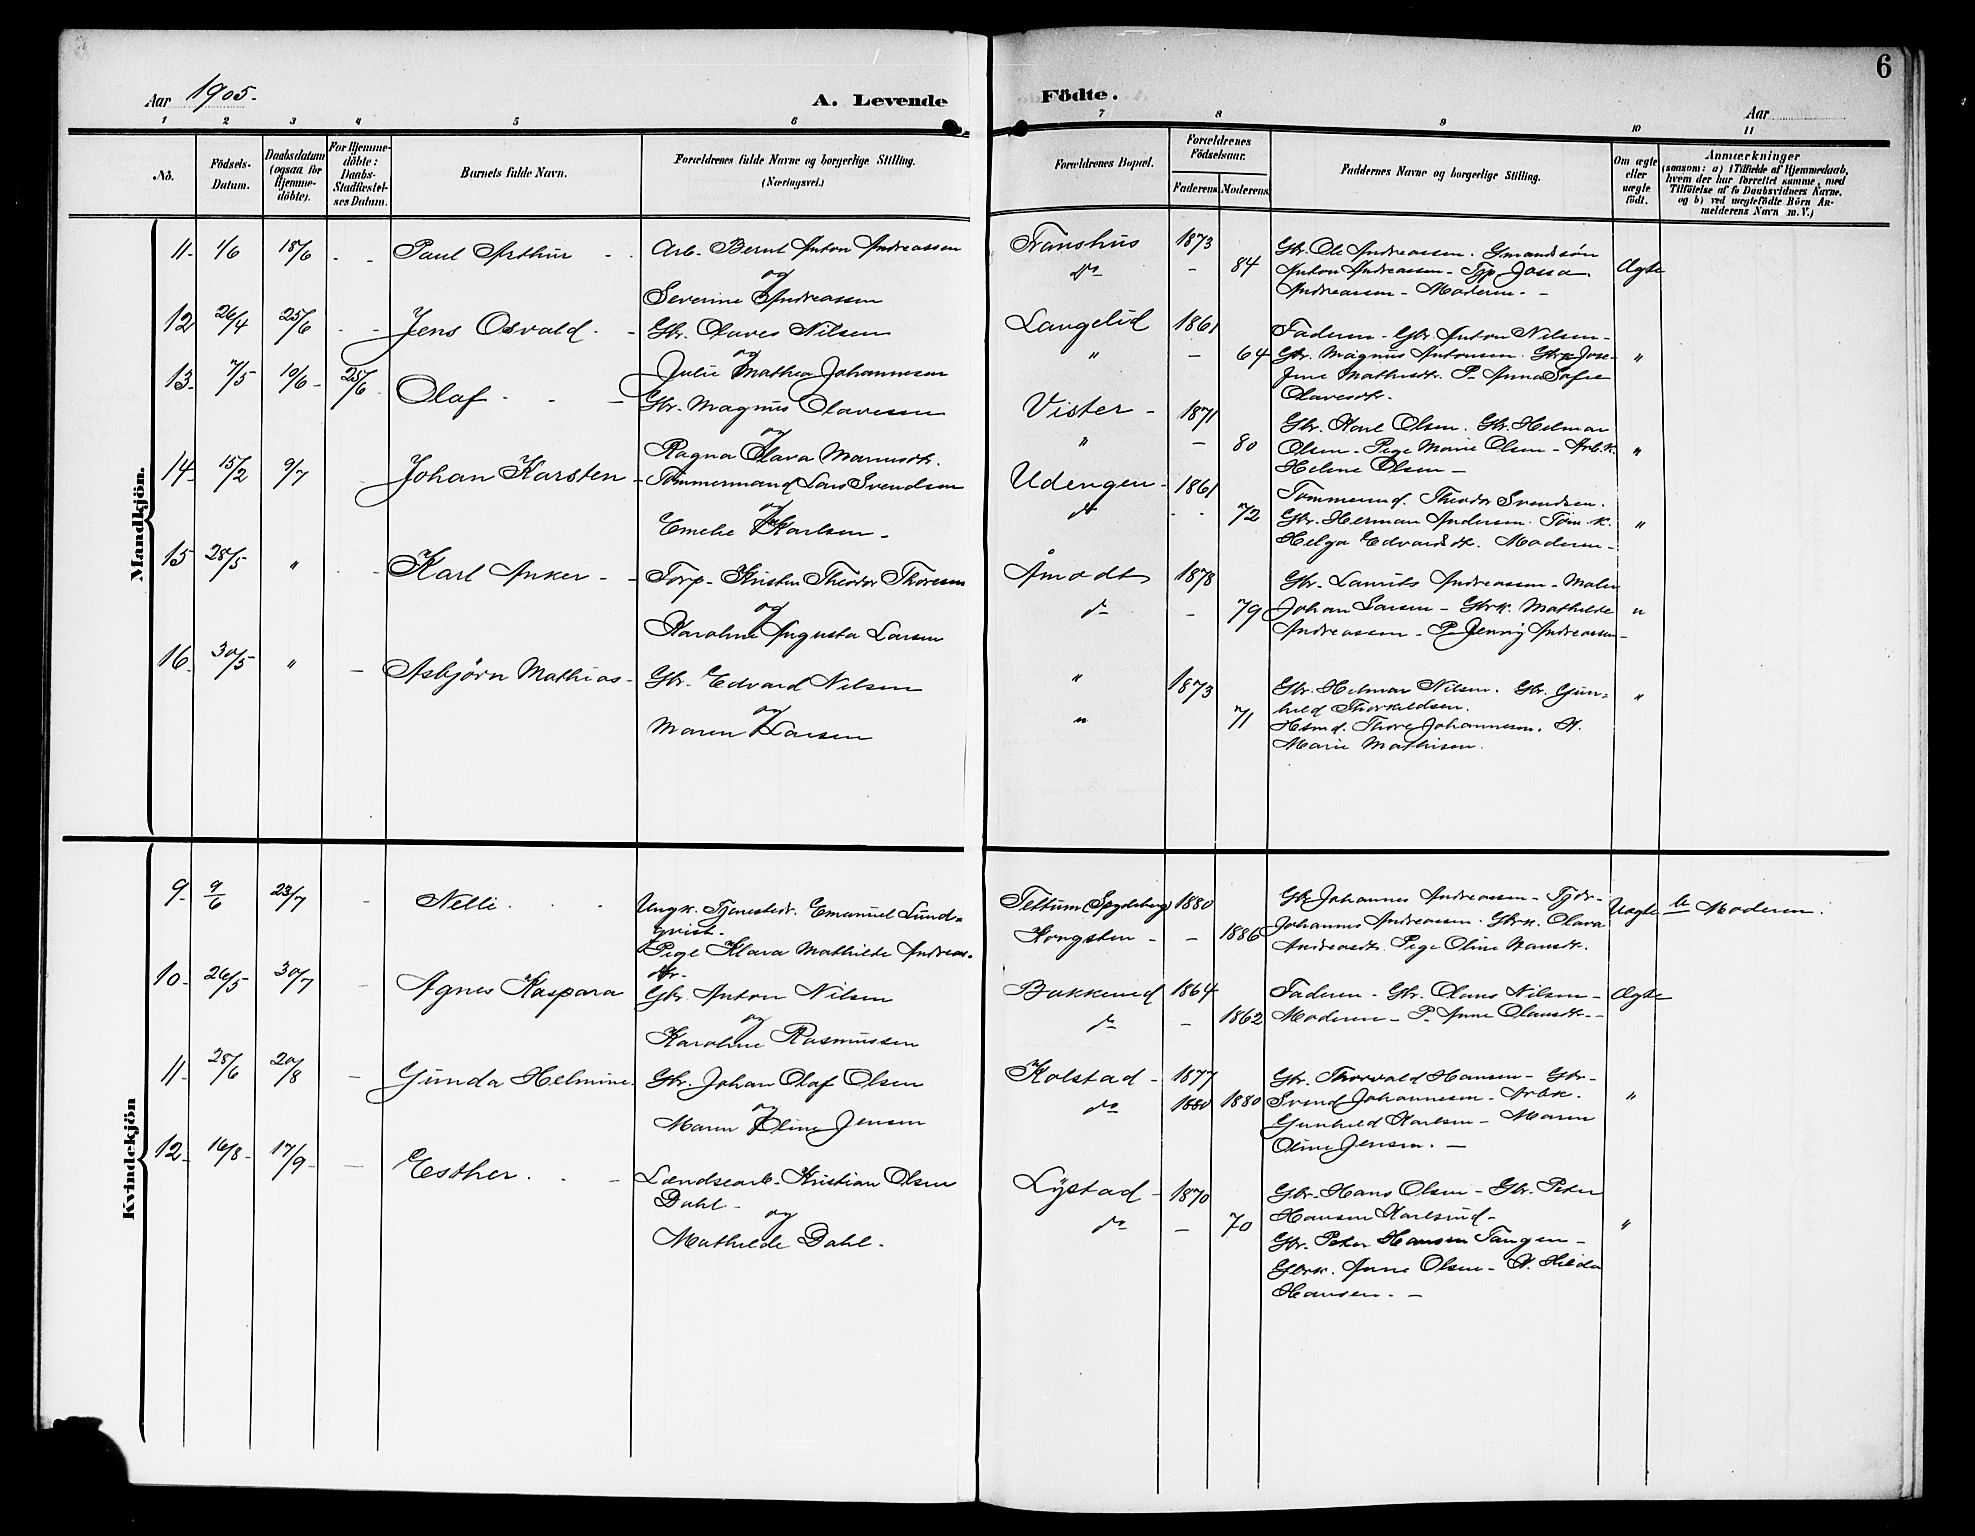 6
Aar 1905.
A. Levende
Födte.
Aar
1 2 3 4 5 6
7 8 9 10 11
Nö.
Födsels-Datum.
Daabsdatum (ogsaa for Hjemme-döbte).
For Hjemme-döbte: Daabs-Stadfæstel-ses Datum.
Barnets fulde Navn.
Forældrenes fulde Navne og borgerlige Stilling.
(Næringsvei.)
Forældrenes Bopæl.
Forældrenes Födselsaar.
Faderens. Moderens.
Faddernes Navne og borgerlige Stilling.
Om ægte eller uægte födt.
Anmærkninger
(saasom: a) i Tilfælde af Hjemmedaab,
hvem der har forrettet samme, med
Tilföielse af to Daabsvidners Navne.
og b) ved uægtefödte Börn An-
melderens Navn m. V.)
Mandkjön.
11. 1/6 18/6 - - Paul Arthur - . Arb. Bernt Anton Andreassen
og
Severine Andreassen
Franshus 1873
do - 84
Gbr. Ole Andreassen. Gmandssön
Anton Andreassen - Tjp. Jossa
Andreassen - Moderen. -
Ægte
12 26/4 25/6 - - Jens Osvald. - Gbr. Olaves Nilsen
og
Julie Mathea Johannesen
Langelid 1861
" - 64
Faderen - Gbr Anton Nilsen -
Gbr. Magnus Antonsen. Gbrk Jose-
fine Mathisdtr. P. Anna Sofie
Olavesdtr.
"
13. 7/5 10/6 - 25/6 Olaf - - - Gbr. Magnus Olavesen
og
Ragna Olava Mariusdtr.
Vister - 1871
" - 80
Gbr. Karl Olsen. Gbr. Helmar
Olsen - Pige Marie Olsen - Arb.k.
Helene Olsen -
"
14. 15/2 9/7 Johan Karsten - Tømmermand Lars Svendsen
og
Emelie Karlsen -
Udengen - 1861
do - - 72
Tømmermd. Theodor Svendsen.
Gbr. Herman Andersen. Tøm. k.
Helga Edvardsdtr. Moderen -
"
15 28/5 " - - Karl Anker - - Torp - Kristen Theodor Thoresen
og
Karoline Augusta Larsen
Åmodt 1878
do - 79
Gbr. Laurits Andreassen - Maler
Johan Larsen - Gbrk. Mathilde
Andreassen - P. Jenny Andreassen -
"
16. 30/5 " - Asbjørn Mathias - Gbr. Edvard Nilsen
og
Maren Larsen
" 1873
" 71
Gbr. Helmar Nilsen. Gbr. Gun-
hild Thorkildsen.
Hsmd. Thore Johannesen. H.
Marie Mathisen.
"
Kvindekjön
9. 9/6 23/7 - Nelli. . . Ungk. Tjenestedr. Emanuel Lund-
qvist.
Pige Klara Mathilde Andreas-
dtr.
Tettum (Spydeberg) 1880
Kongsten - - 1886
Gbr Johannes Andreassen - Tjdr -
Johannes Andreassen. Gbrk. Olava
Andreasdtr. Pige Oline Hansdtr.
Uægte b. Moderen.
10. 26/5 30/7 - Agnes Kaspara Gbr. Anton Nilsen
og
Karoline Rasmussen
Bakkerud 1864
do - 1862
Faderen - Gbr. Olaus Nilsen -
Moderen - P. Anne Olausdtr. -
Ægte
11. 28/6 20/8 - Gunda Helmine. Gbr. Johan Olaf Olsen
og
Maren Oline Jensen
Kolstad - 1877
do 1880 1880
Gbr. Thorvald Hansen - Gbr -
Svend Johannesen - Arbk.
Gunhild Karlsen - Maren
Oline Jensen. -
"
12. 16/8 - 17/9 - - Esther. . - Lændsearb. Kristian Olsen
Dahl -
og
Mathilde Dahl -
Lystad - 1870
do - 70
Gbr. Hans Olsen - Gbr. Peter
Hansen Karlsrud -
Gbr. Peter Hansen Tangen -
Gbrk. Anne Olsen - H. Hilda
Hansen. -
"